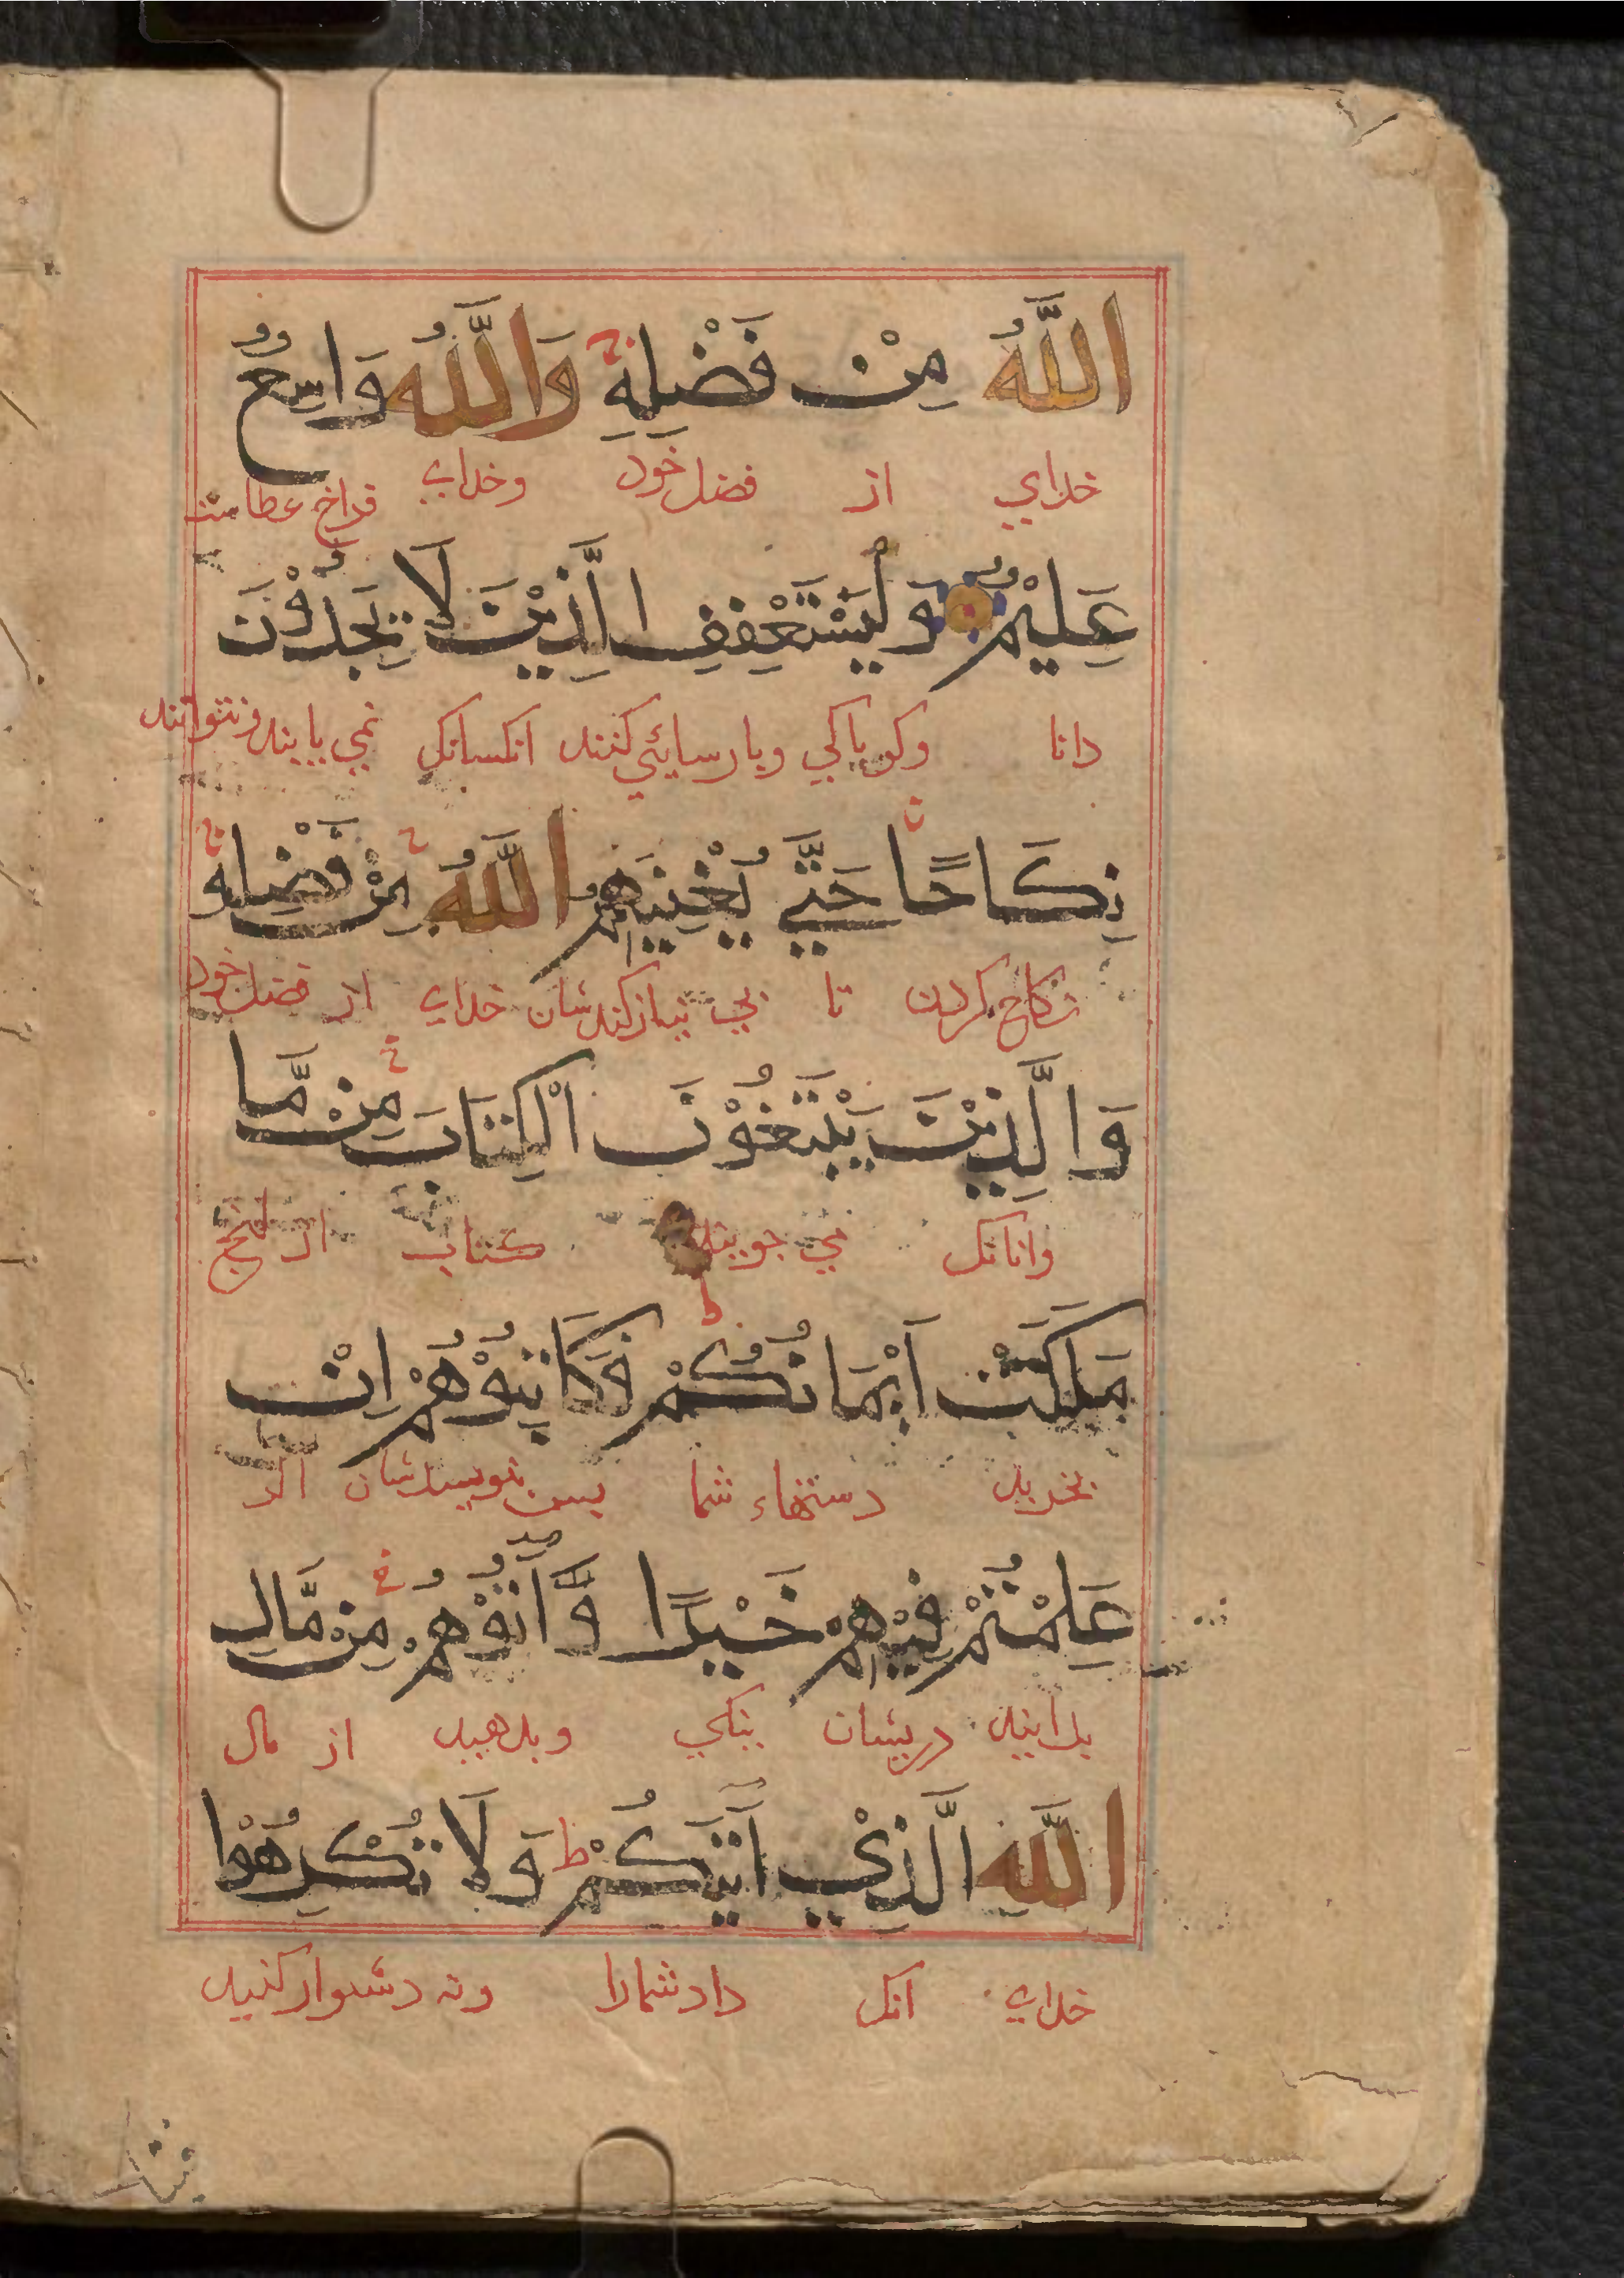 اللَّهُ مِنْ فَضْلِهِ وَاللَّهُ وَاسِعٌ
خدای از فضل خود وخدای فراخ عطاست
عَلِيْمٌ وَلْيَسْتَعْفِفِ الَّذِيْنَ لَا يَجِدُوْنَ
دانا وکو پاکی وپارسایئی کنند انکسانک نمی یابند ونتوانند
نِكَاحًا حَتَّى يُغْنِيَهُمُ اللَّهُ مِنْ فَضْلِهِ
نکاح کردن تا بی نیاز کندشان خدای از فضل خود
وَالَّذِيْنَ يَبْتَغُوْنَ الْكِتَابَ مِنْ مَّا
وانانک می جویند کتاب از انج
مَلَكَتْ أَيْمَانُكُمْ فَكَاتِبُوْهُمْ اِنْ
بخرید دستهاء شما پس بنویسدشان اکر
عَلِمْتُمْ فِيْهِمْ خَيْرًا وَّآتُوْهُمْ مِنْ مَّالِ
بدانید دریشان نیکی وبدهید از مال
اللَّهِ الَّذِيْ آتَيكُمْ ط وَلَا تُكْرِهُوْا
خدای انک داد شمارا ونه دشوار کنید